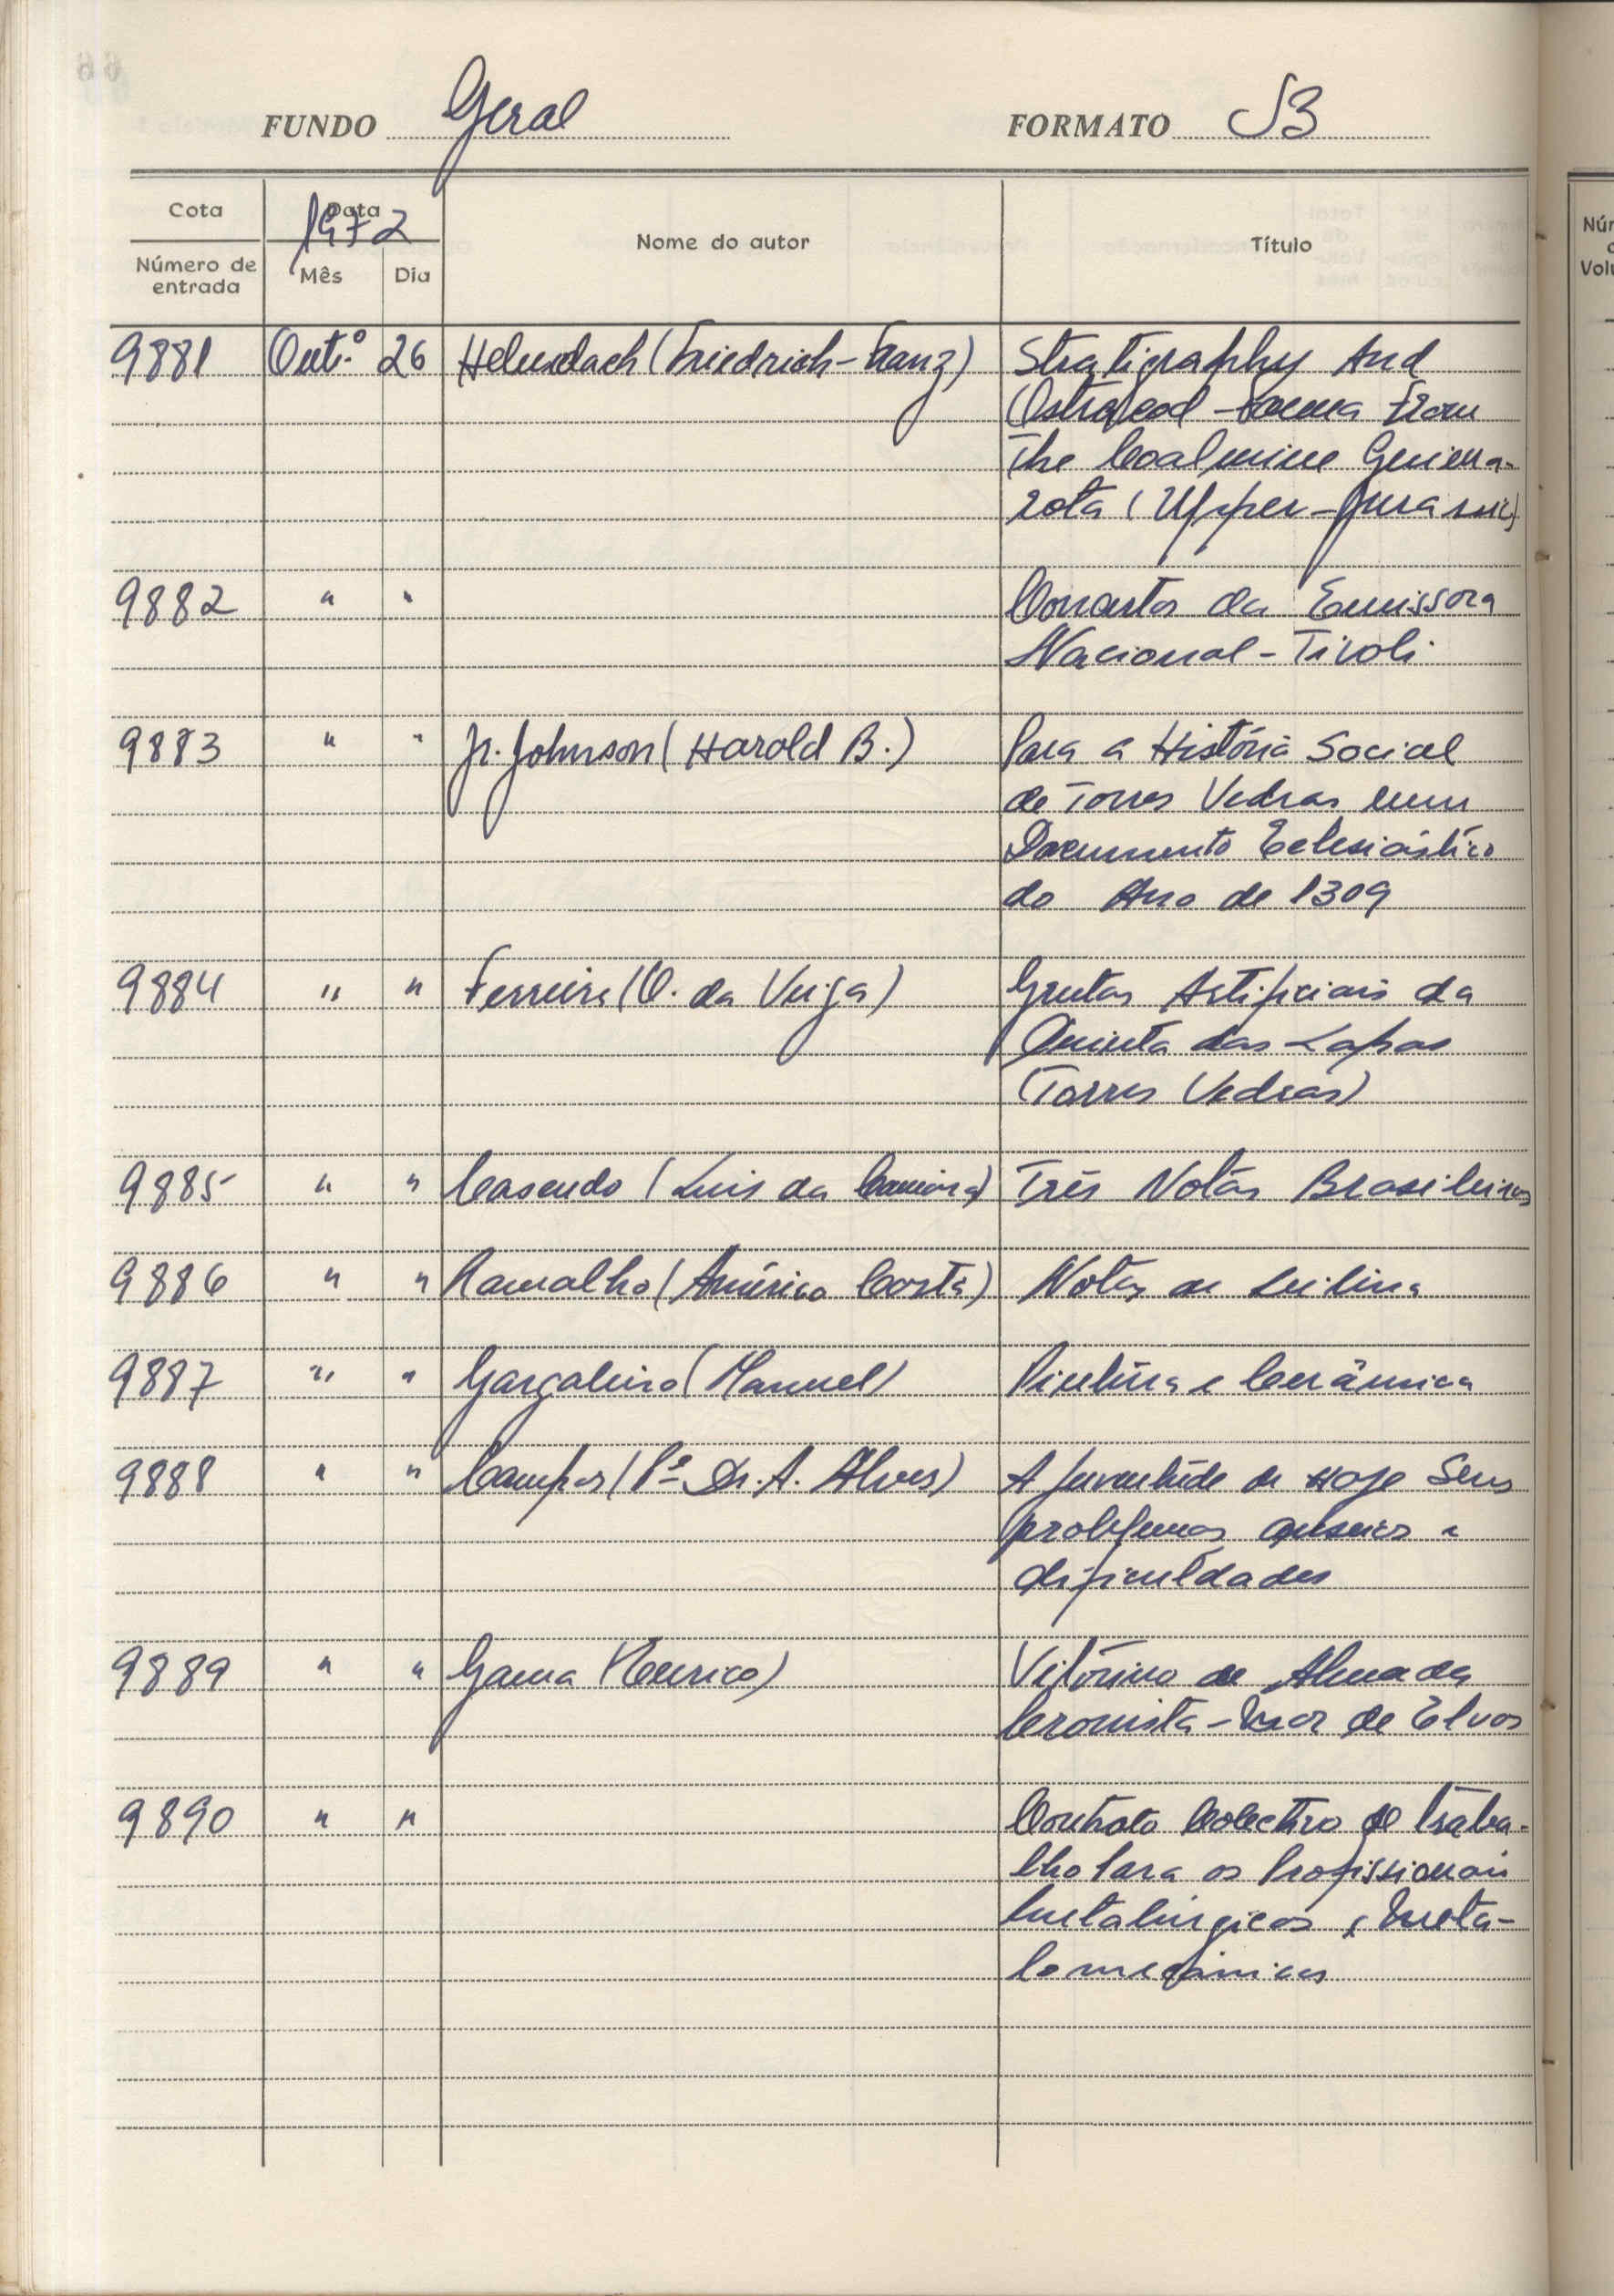 FUNDO Geral FORMATO B
Cota Data 1972 Nome do autor Título
Número de entrada Mês Dia
9881 Out.º 26 Helmdach (Friedrich-Franz) Stratigraphy And
Ostracod-Fauna From
The Coalmine Guima-
rota (Upper-Jurassic)
9882 " " Concertos da Emissora
Nacional-Tivoli
9883 " " Jr. Johnson (Harold B.) Para a História Social
de Torres Vedras num
Documento Eclesiástico
do Ano de 1309
9884 " " Ferreira (O. da Veiga) Grutas Artificiais da
Quinta das Lapas
(Torres Vedras)
9885 " " Cascudo (Luis da Camara) Três Notas Brasileiras
9886 " " Ramalho (Américo Costa) Notas de
9887 " " Gargaleiro (Manuel) Pintura e Cerâmica
9888 " " Campos (Pe Dr. A. Alves) A Juventude de Hoje Seus
problemas anseios e
dificuldades
9889 " " Gama (Eurico) Vitorino de Almada
Cronista-Mor de Elvas
9890 " " Contrato Colectivo de Traba-
lho Para os Profissionais
Metalúrgicos e Meta-
lomecânicos
Núm
Volu